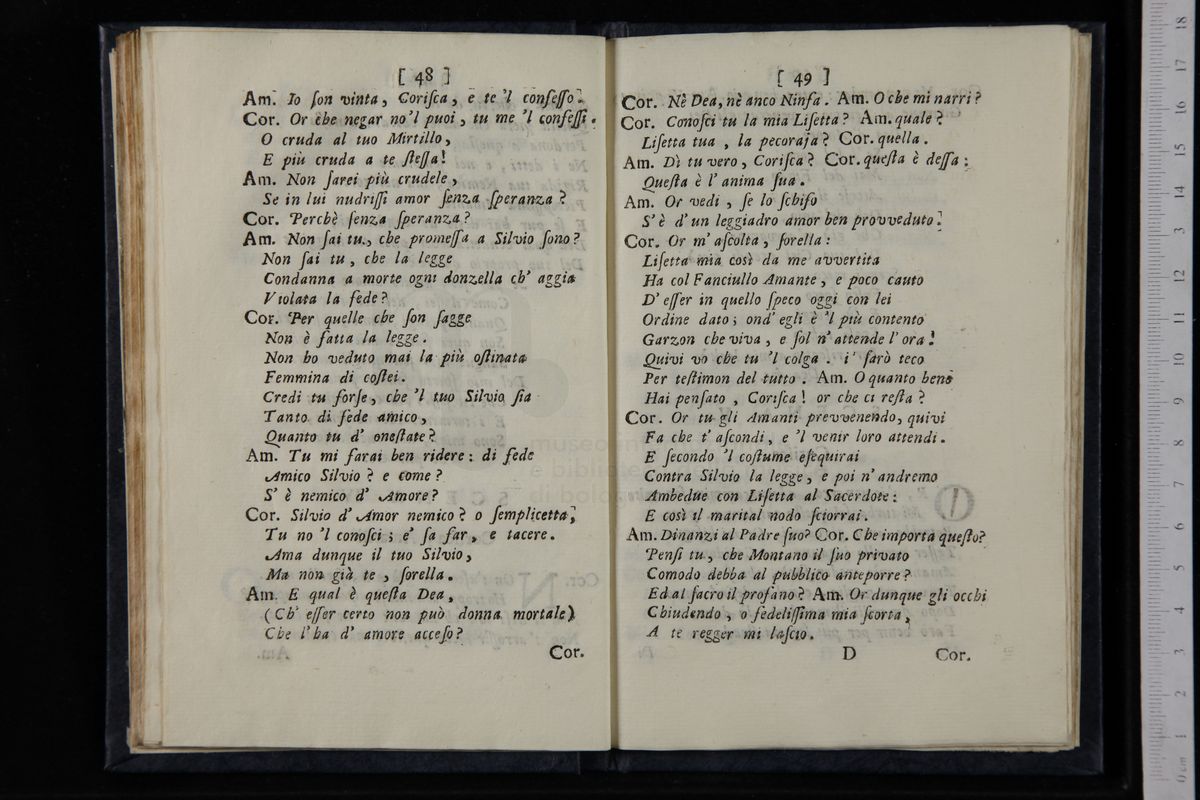 [ 48 ]
Am. Io ſon vinta, Coriſca, e te 'l confeſſo.
Cor. Or che negar no 'l puoi, tu me 'l confeſſi.
O cruda al tuo Mirtillo,
E più cruda a te ſteſſa!
Am. Non ſarei più crudele,
Se in lui nudriſſi amor ſenza ſperanza?
Cor. Perchè ſenza ſperanza?
Am. Non ſai tu, che promeſſa a Silvio ſono?
Non ſai tu, che la legge
Condanna a morte ogni donzella ch' aggia
Violata la fede?
Cor. Per quelle che ſon ſagge
Non è fatta la legge.
Non ho veduto mai la più oſtinata
Femmina di coſtei.
Credi tu forſe, che 'l tuo Silvio ſia
Tanto di fede amico,
Quanto tu d' oneſtate?
Am. Tu mi farai ben ridere: di fede
Amico Silvio? e come?
S' è nemico d' Amore?
Cor. Silvio d' Amor nemico? o ſemplicetta,
Tu no 'l conoſci; e' ſa far, e tacere.
Ama dunque il tuo Silvio,
Ma non già te, ſorella.
Am. E qual è queſta Dea,
(Ch' eſſer certo non può donna mortale)
Che l' ha d' amore acceſo?
Cor.
[ 49 ]
Cor. Nè Dea, nè anco Ninfa. Am. O che mi narri?
Cor. Conoſci tu la mia Liſetta? Am. quale?
Liſetta tua, la pecoraja? Cor. quella.
Am. Dì tu vero, Coriſca? Cor. queſta è deſſa:
Queſta è l' anima ſua.
Am. Or vedi, ſe lo ſchifo
S' è d' un leggiadro amor ben provveduto!
Cor. Or m' aſcolta, ſorella:
Liſetta mia così da me avvertita
Ha col Fanciullo Amante, e poco cauto
D' eſſer in quello ſpeco oggi con lei
Ordine dato; ond' egli è 'l più contento
Garzon che viva, e ſol n' attende l' ora!
Quivi vo che tu 'l colga. i' farò teco
Per teſtimon del tutto. Am. O quanto bene
Hai penſato, Coriſca! or che ci reſta?
Cor. Or tu gli Amanti prevvenendo, quivi
Fa che t' aſcondi, e 'l venir loro attendi.
E ſecondo 'l coſtume eſequirai
Contra Silvio la legge, e poi n' andremo
Ambedue con Liſetta al Sacerdote:
E così il marital nodo ſciorrai.
Am. Dinanzi al Padre ſuo? Cor. Che importa queſto?
Penſi tu, che Montano il ſuo privato
Comodo debba al pubblico anteporre?
Ed al ſacro il profano? Am. Or dunque gli occhi
Chiudendo, o fedeliſſima mia ſcorta,
A te regger mi laſcio.
D Cor.